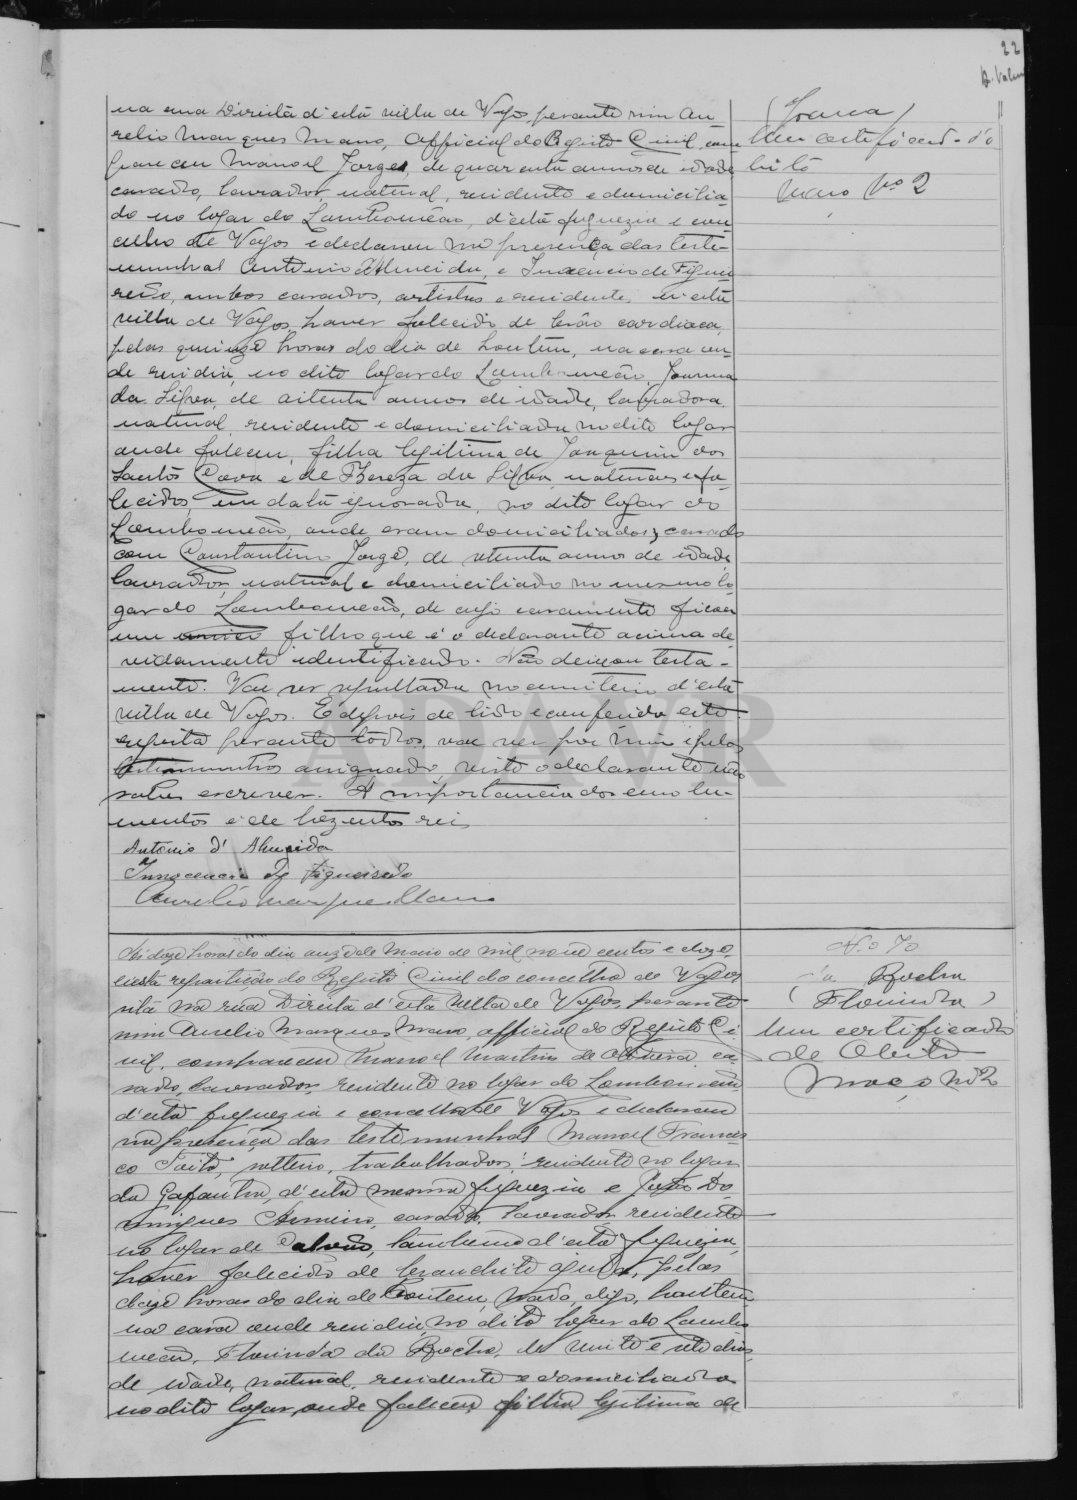 22
na rua Direita d'esta villa de Vagos, perante mim Au-
relio Marques Mano, official do Registo Civil, com
pareceu Manoel Jorge, de quarenta annos de idade
casado, lavrador, natural, residente e domicilia-
do no logar do Lombomeão, d'esta freguezia e con-
celho de Vagos e declarou na presença das teste-
munhas Antonio d'Almeida, e Innocencio de Figuei-
redo, ambos casados, artistas e residentes, n'esta
villa de Vagos, haver falecido de lesão cardiaca,
pelas quinze horas do dia de hontem, na casa on-
de residia, no dito logar do Lombomeão, Joanna
da Silva, de oitenta annos de idade, lavradora,
natural, residente e domiciliada no dito logar
onde faleceu, filha legitima de Joaquim dos
Santos Cava e de Thereza da Silva, naturaes e fa-
lecidos, em data ignorada, no dito logar do
Lombomeão, onde eram domiciliados, casada
com Constantino Jorge, de setenta annos de idade,
lavrador, natural e domiciliado no mesmo lo-
gar do Lombomeão, de cujo casamento ficou
um unico filho que é o declarante acima de-
vidamente identificado. Não deixou testa-
mento. Vae ser sepultada no cemiterio d'esta
villa de Vagos. E depois de lido e conferido este
registo perante todos, vae ser por mim e pelas
testemunhas assignado, visto o declarante não
saber escrever. A importancia dos emolu-
mentos é de trezentos reis
Antonio d' Almeida
Innocencio de Figueiredo
Aurelio Marques Mano
(Joanna)
Um certificado d'o
bito
Maço Nº 2
Ás doze horas do dia onze de Maio de mil nove centos e doze,
n'esta repartição do Registo Civil do concelho de Vagos
sita na rua Direita d'esta villa de Vagos, perante
mim Aurelio Marques Mano, official do Registo Ci-
vil, compareceu Manoel Martins de Oliveira, ca-
sado, lavrador, residente no logar do Lombomeão
d'esta freguezia e concelho de Vagos e declarou
na presença das testemunhas Manoel Francis
co Joito, solteiro, trabalhador, residente no logar
da Gafanha, d'esta mesma freguezia e João Do-
mingues, casado, lavrador, residente
no logar de Calvão, tambem d'esta freguezia,
haver falecido de bronchite aguda, pelas
doze horas do dia de hontem, nada, digo, hontem
na casa onde residia, no dito logar do Lombo
meão, Florinda da Rocha, de vinte e sete dias
de idade, natural, residente e domiciliada
no dito logar, onde faleceu, filha legitima de
Nº 70
Rocha
(Florinda)
Um certificado
de Obito
Maço Nº 2
ADAVR